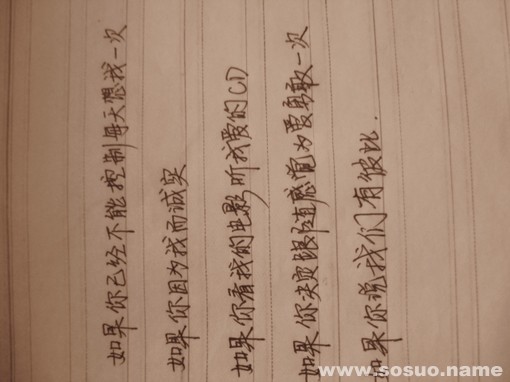 如果你已经不能控制每天想我一次
如果你因为我而诚实
如果你看我的电影 听我爱的CD
如果你决定跟随感觉为爱勇敢一次
如果你说我们有彼此.
www.sosuo.name